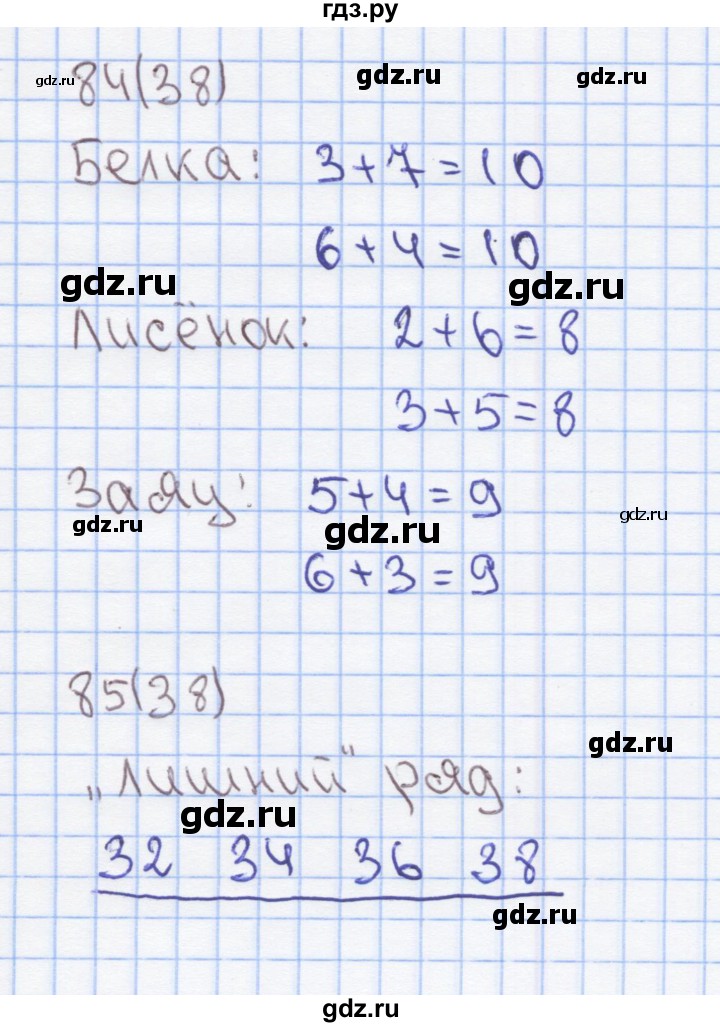 гдз.ру
gdz.ru
84(38)
gdz.ru
gdz.ru
Белка: 3+7=10
6+4=10
gdz.ru
gdz.ru
Лисёнок: 2+6=8
3+5=8
Заяц: 5+4=9
gdz.ru
gdz.ru
gdz.ru
6+3=9
85(38)
gdz.ru
„Лишний" ряд:
gdz.ru
32 34 36 38
gdz.ru
gdz.ru